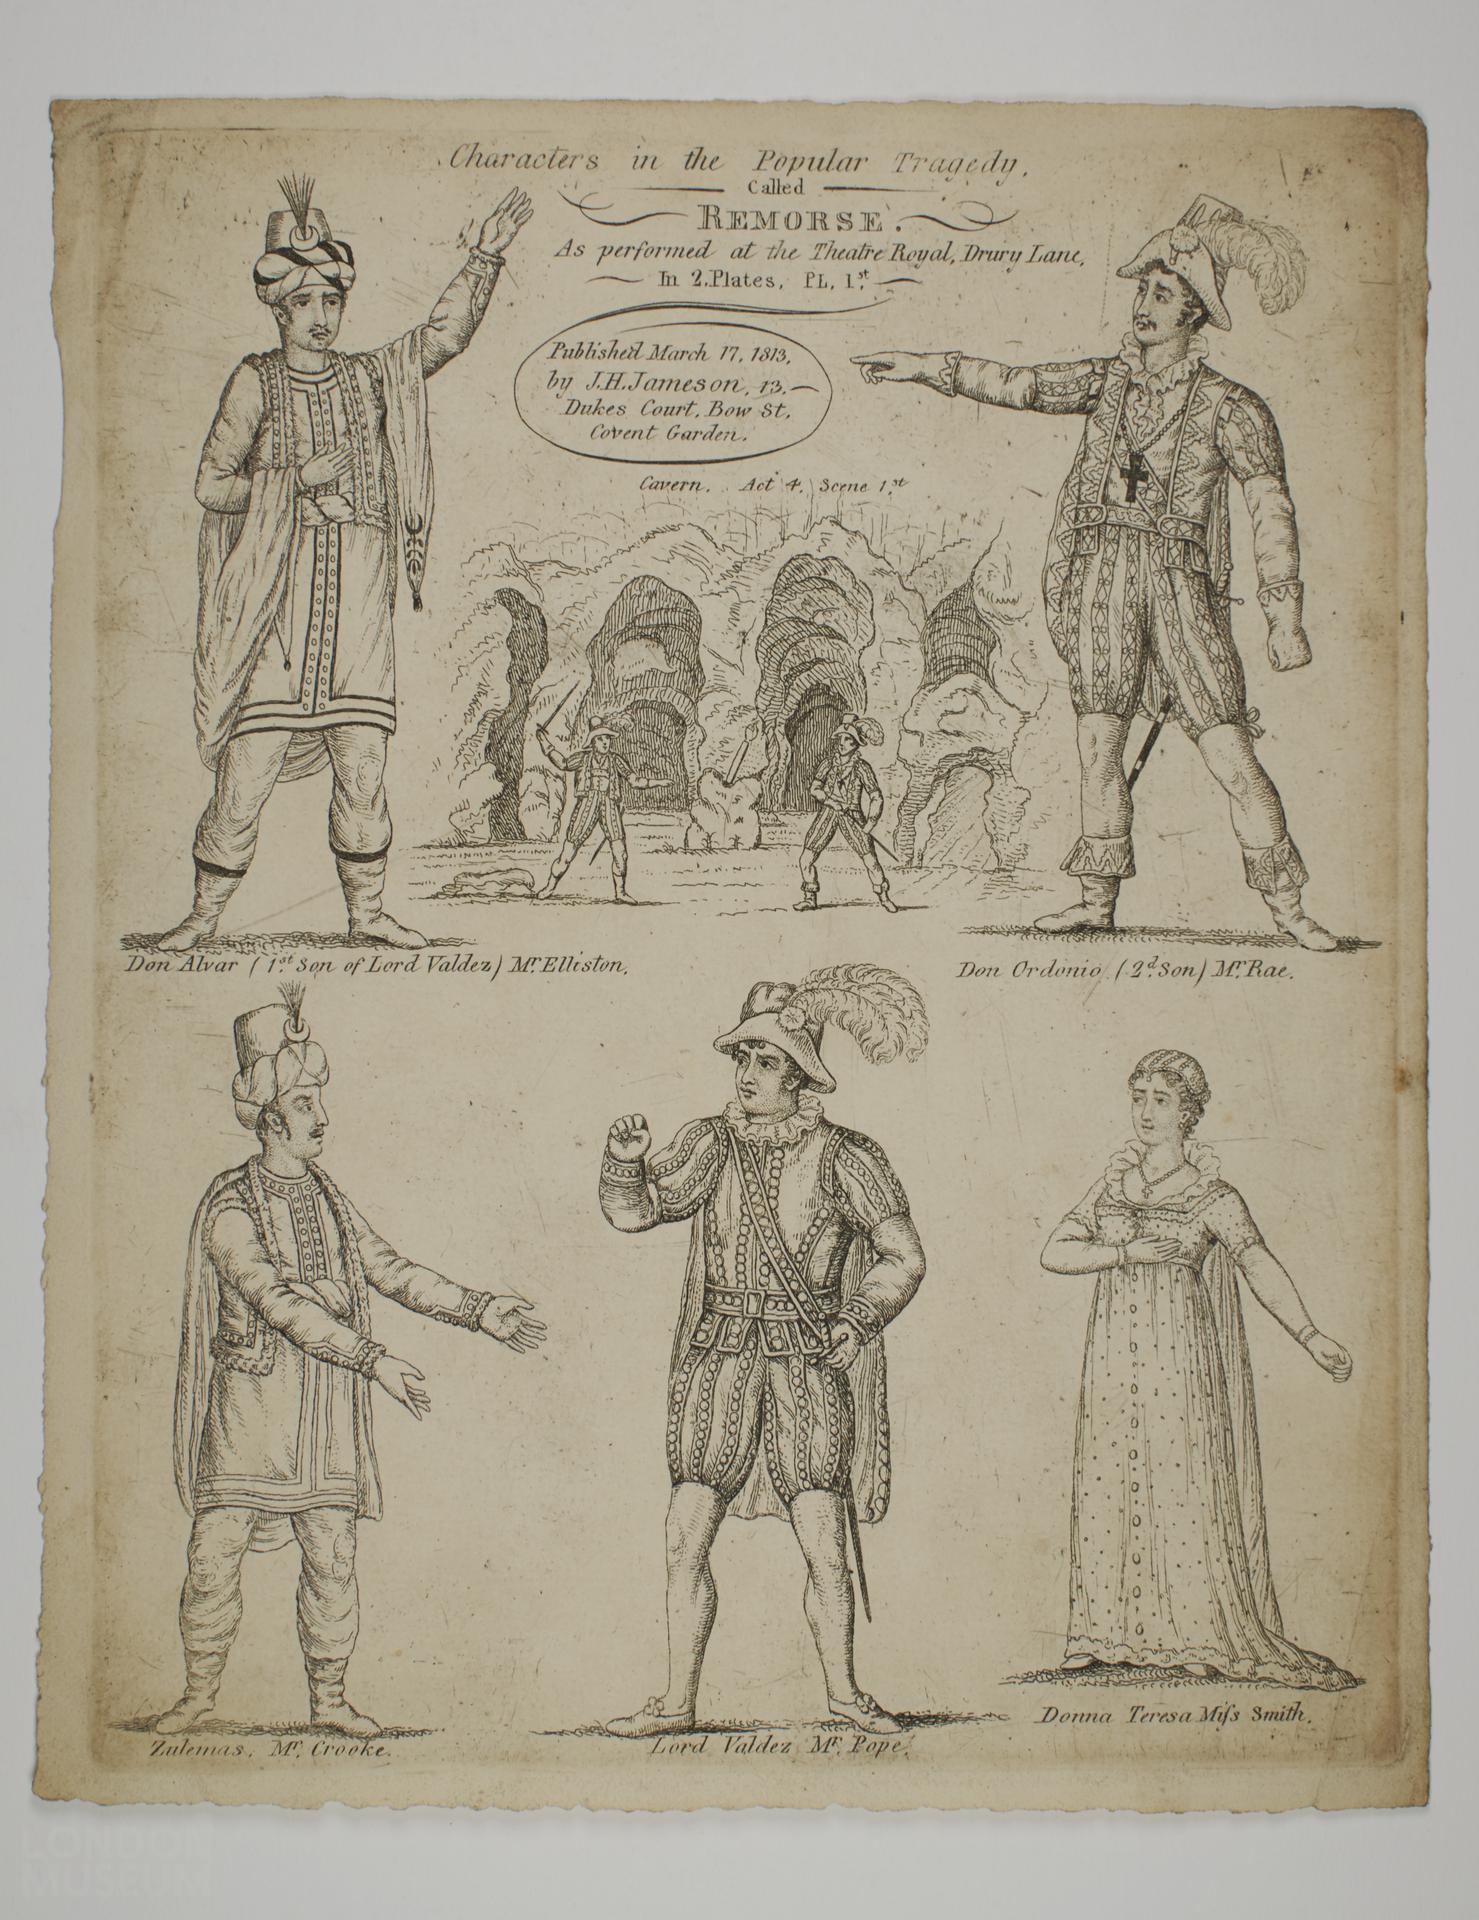 Characters in the Popular Tragedy,
Called
REMORSE.
As performed at the Theatre Royal, Drury Lane,
In 2 Plates, PL. 1st.
Published March 17, 1813,
by J.H. Jameson, 13.
Dukes Court, Bow St,
Covent Garden.
Cavern. Act 4, Scene 1st
Don Alvar (1st Son of Lord Valdez) Mr. Elliston.
Don Ordonio (2d Son) Mr. Rae.
Zulemas, Mr. Crooke.
Lord Valdez Mr. Pope.
Donna Teresa Miſs Smith.
LONDON
MUSEUM